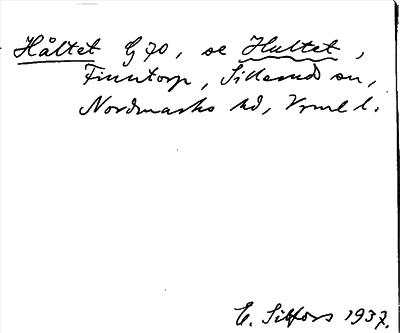 Håltet G 70, se Hultet,
Finntorp, Sillerud sn,
Nordmarks hd, Vrml l.
E. Sibfors 1937.